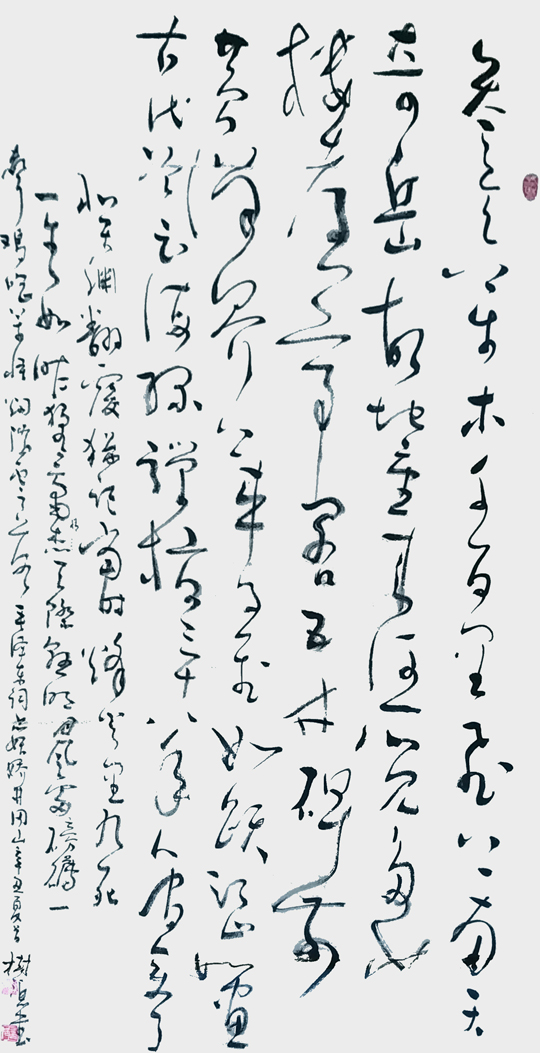 参天万木千百里飞上南天
奇岳故地重来何所见多了
楼台亭阁五井碑前
黄洋界上车子飞如跃江山如画
古代曾云海绿弹指三十八年人间变了
似天渊翻覆犹记当时烽火里九死
一生如昨独有豪情天际悬明月风雷磅礴一
声鸡唱万怪烟消云落 毛泽东词念奴娇井冈山辛丑夏月 树 书